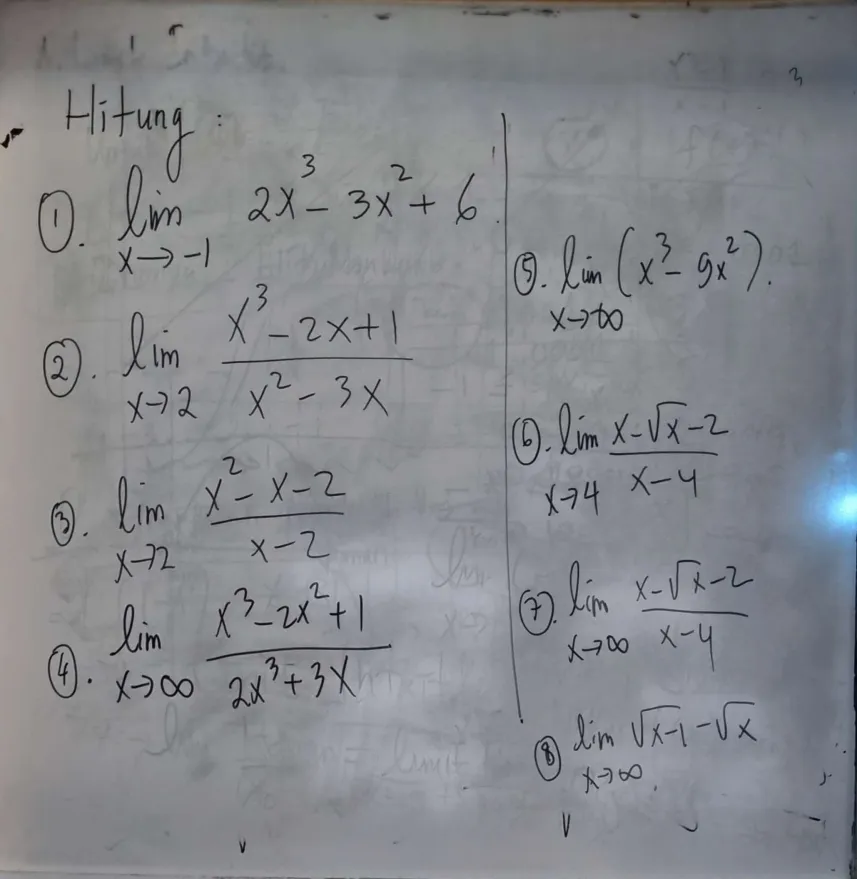 Hitung :
①. lim x→-1 2x³ - 3x² + 6
②. lim x→2 (x³ - 2x + 1)/(x² - 3x)
③. lim x→2 (x² - x - 2)/(x - 2)
④. lim x→∞ (x³ - 2x² + 1)/(2x³ + 3x)
⑤. lim x→∞ (x³ - 9x²).
⑥. lim x→4 (x - √x - 2)/(x - 4)
⑦. lim x→∞ (x - √x - 2)/(x - 4)
⑧ lim x→∞ √(x-1) - √x